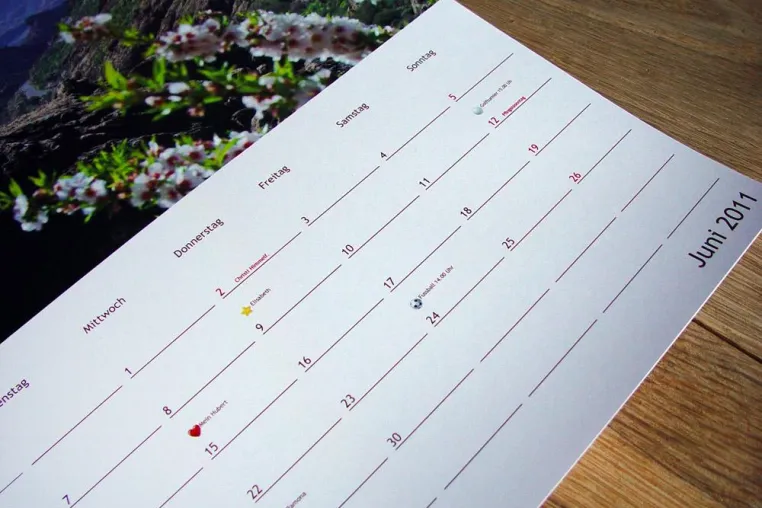 enstag Mittwoch Donnerstag Freitag Samstag Sonntag
1 2 Christi Himmelf. 3 4 5
Elisabeth
7 8 9 10 11 12
Herrn Hubert
15 16 17 18 19
Fussball 14.00 Uhr
22 23 24 25 26
30
Juni 2011